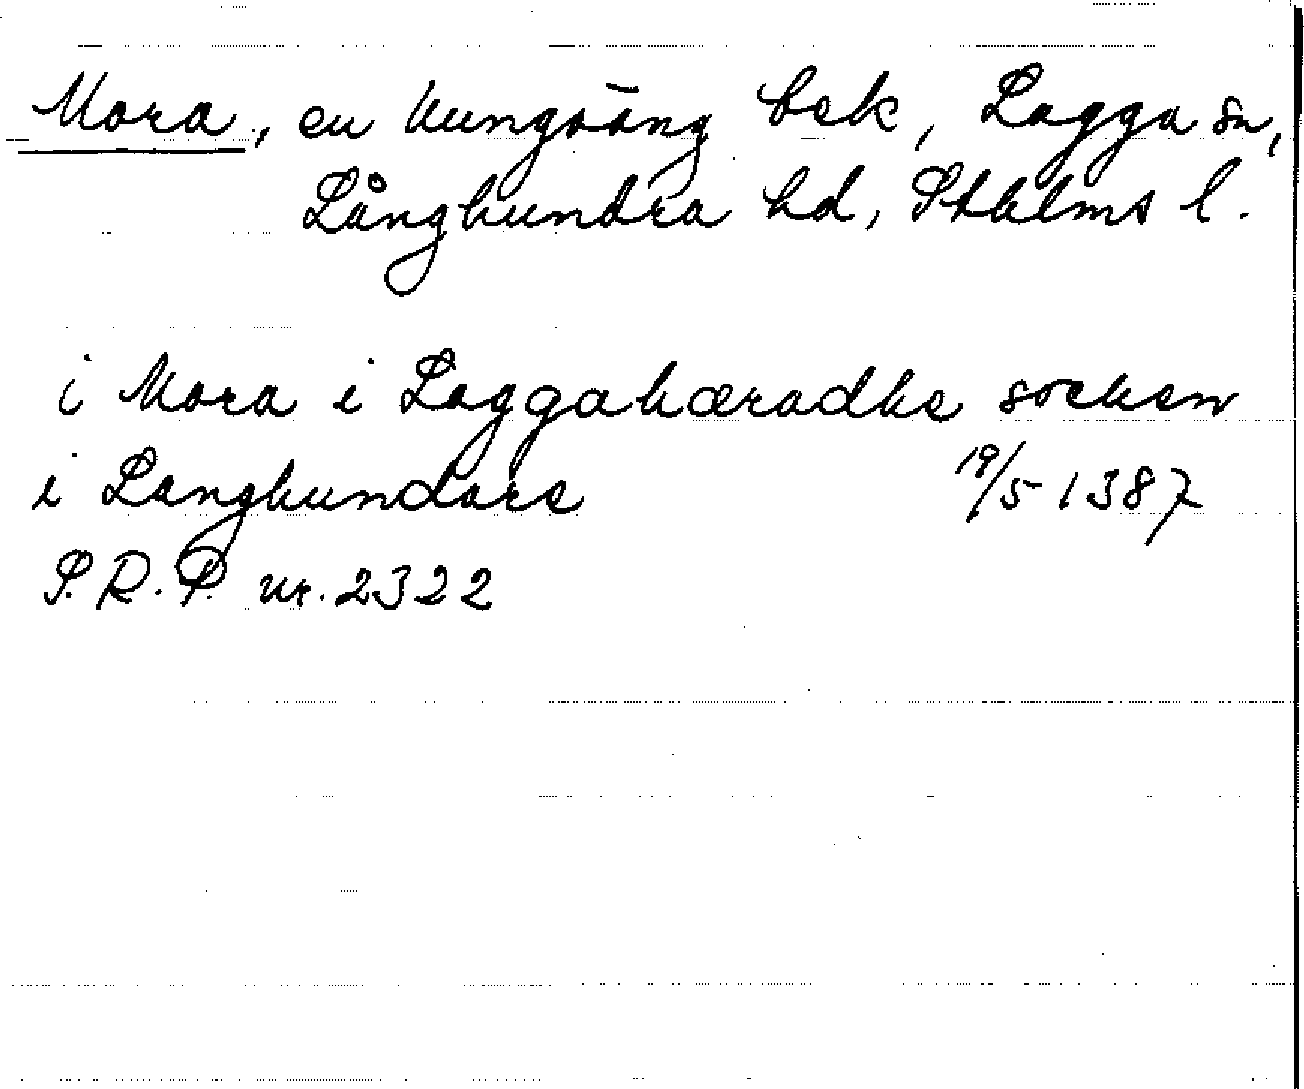 Mora, en kungsäng bek, Lagga sn,
Långhundra hd, Sthlms l.
i Mora i Laggahæradhe socken
i Langhundare 19/5 1387
S.R.P. nr. 2322